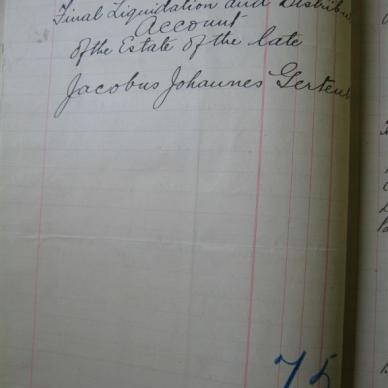 Final Liquidation and Distribu
Account
Of the Estate of the late
Jacobus Johannes Gerten
75